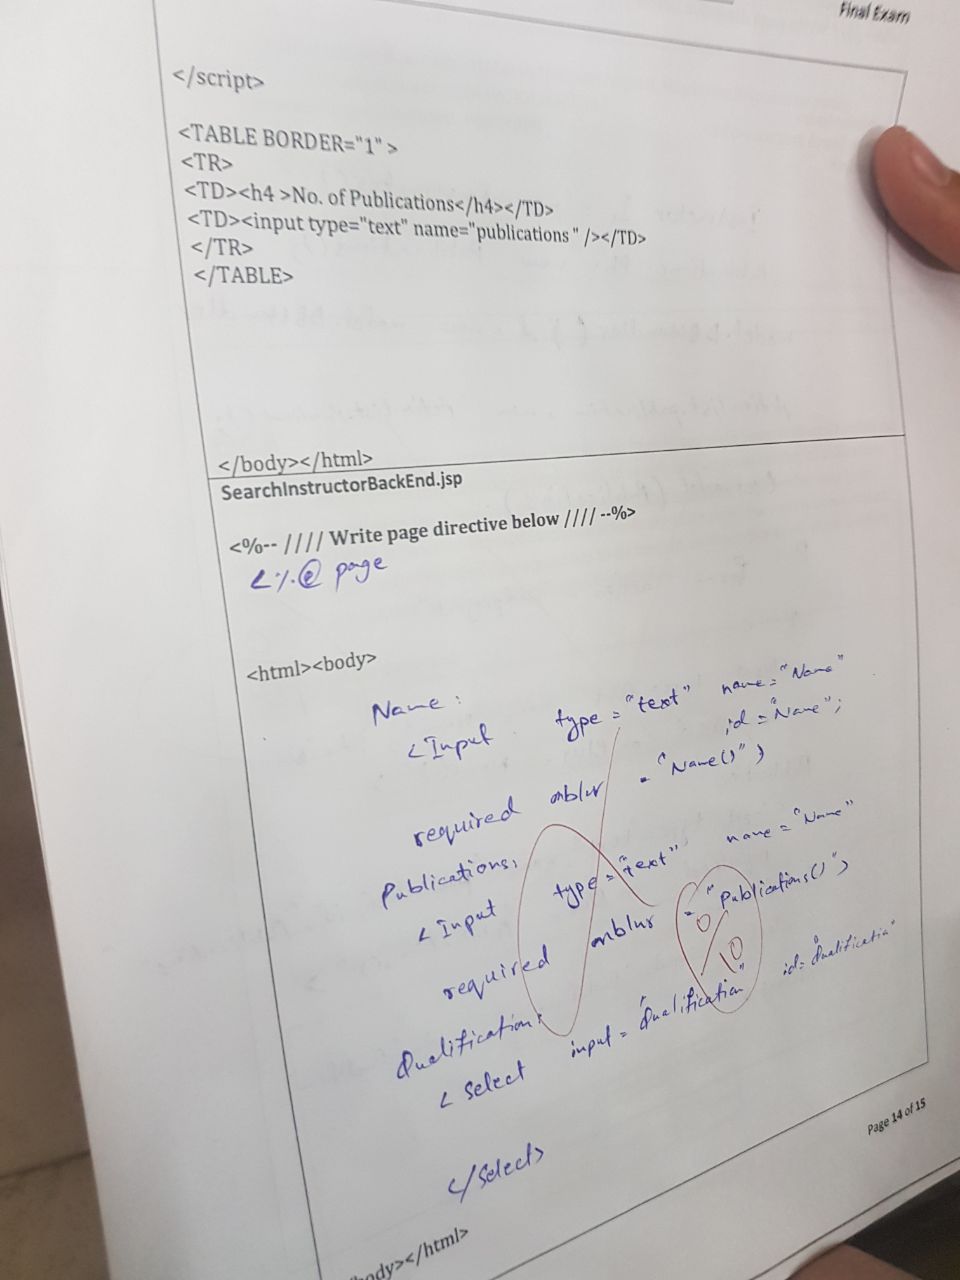 Final Exam
</script>
<TABLE BORDER="1" >
<TR>
<TD><h4 >No. of Publications</h4></TD>
<TD><input type="text" name="publications " /></TD>
</TR>
</TABLE>
</body></html>
SearchInstructorBackEnd.jsp
<%-- //// Write page directive below //// --%>
<%@ page
<html><body>
Name :
<Input type = "text" name = "Name"
id = "Name";
required onblur = "Name()" )
Publications:
<Input type = "text" name = "Name"
required onblur = "Publications()" )
0/10
Qualification:
<Select input = "Qualification" id = "Qualification"
</Select>
Page 14 of 15
body></html>